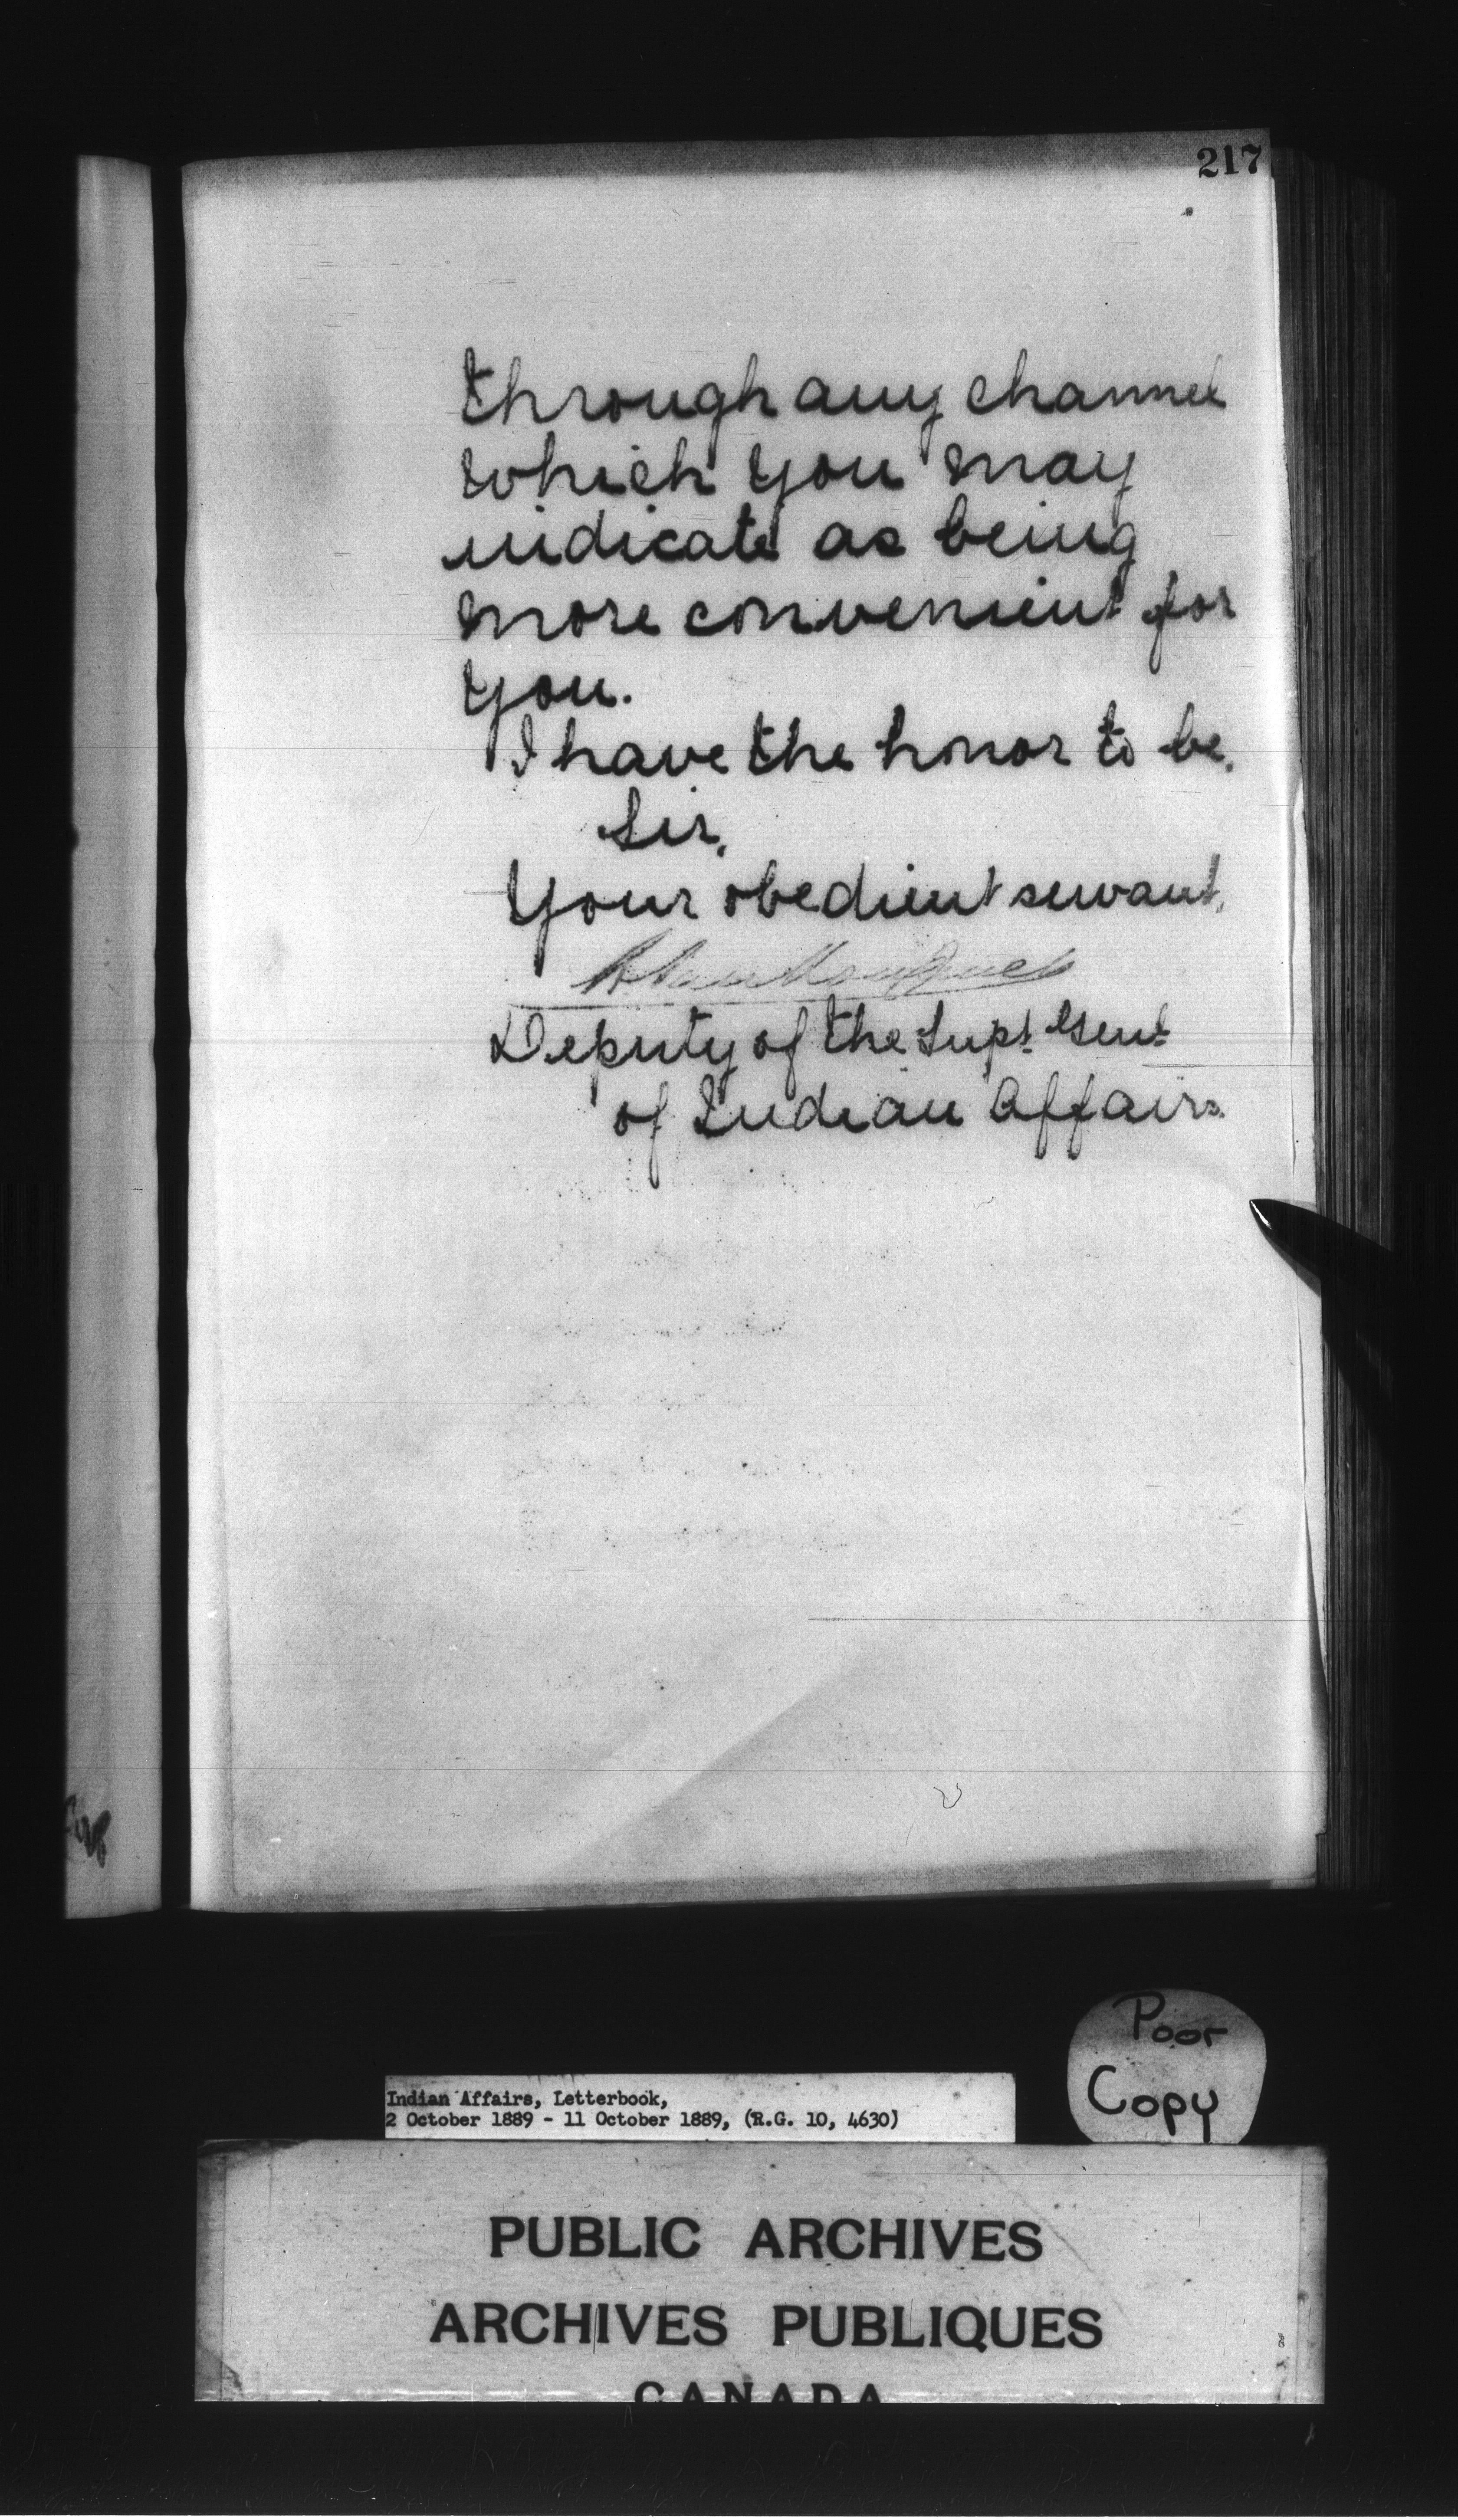 217
through any channel
which you may
indicate as being
more convenient for
you.
I have the honor to be,
Sir,
Your obedient servant,
Deputy of the Supt. Genl.
of Indian Affairs.
Poor
Copy
Indian Affairs, Letterbook,
2 October 1889 - 11 October 1889, (R.G. 10, 4630)
PUBLIC ARCHIVES
ARCHIVES PUBLIQUES
CANADA